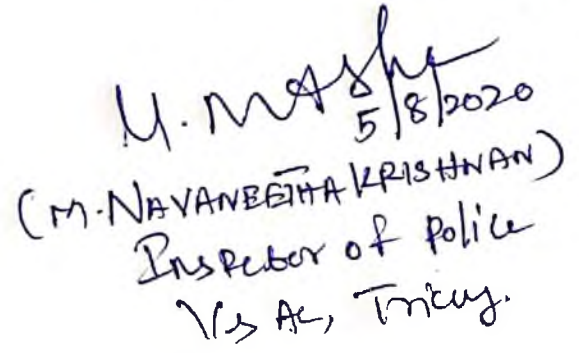 5/8/2020
(M. NAVANEETHA KRISHNAN)
Inspector of Police
V&AC, Trichy.